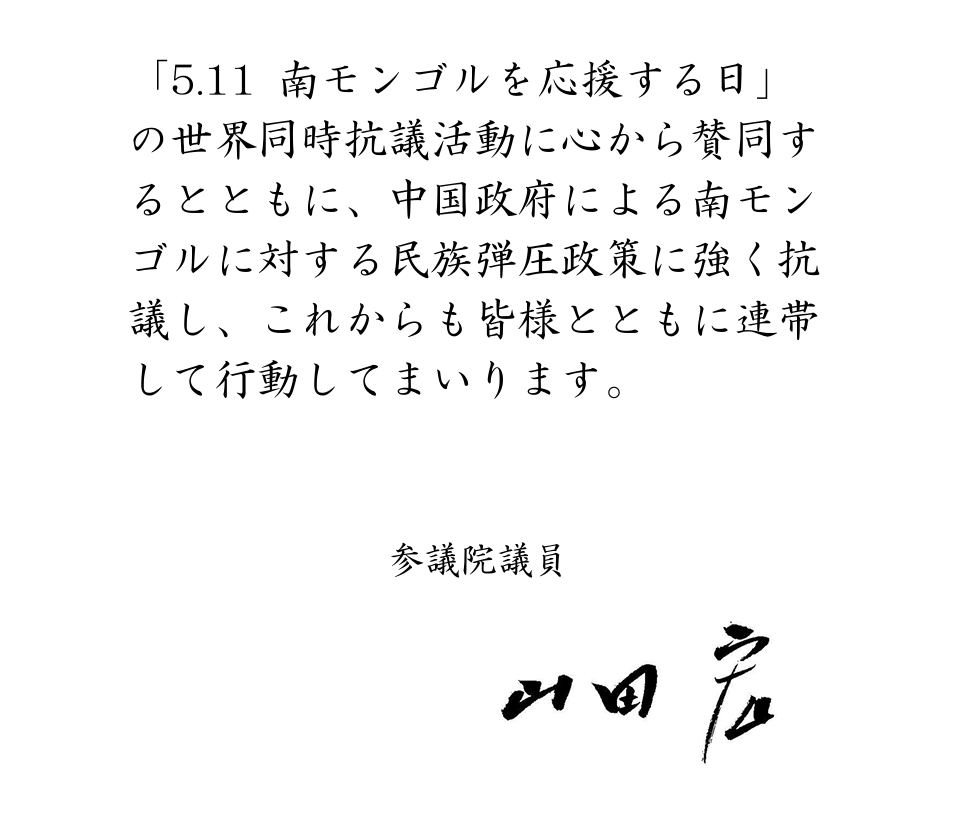 「5.11 南モンゴルを応援する日」
の世界同時抗議活動に心から賛同す
るとともに、中国政府による南モン
ゴルに対する民族弾圧政策に強く抗
議し、これからも皆様とともに連帯
して行動してまいります。
参議院議員
山田宏